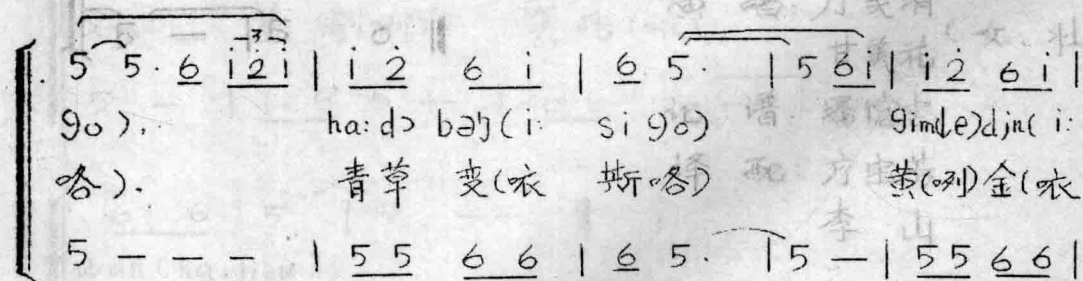 5 5· 6 i̇ 2̇ i̇ | i̇ 2̇ 6 i̇ | 6 5· | 5 6 i̇ | i̇ 2̇ 6 i̇ |
go). ha:dɔ bəŋ(i: si go) gim(le)djn( i:
咯). 青草 变(咴 斯咯) 黄(咧)金(咴
5 — — — | 5 5 6 6 | 6 5· | 5 — | 5 5 6 6 |